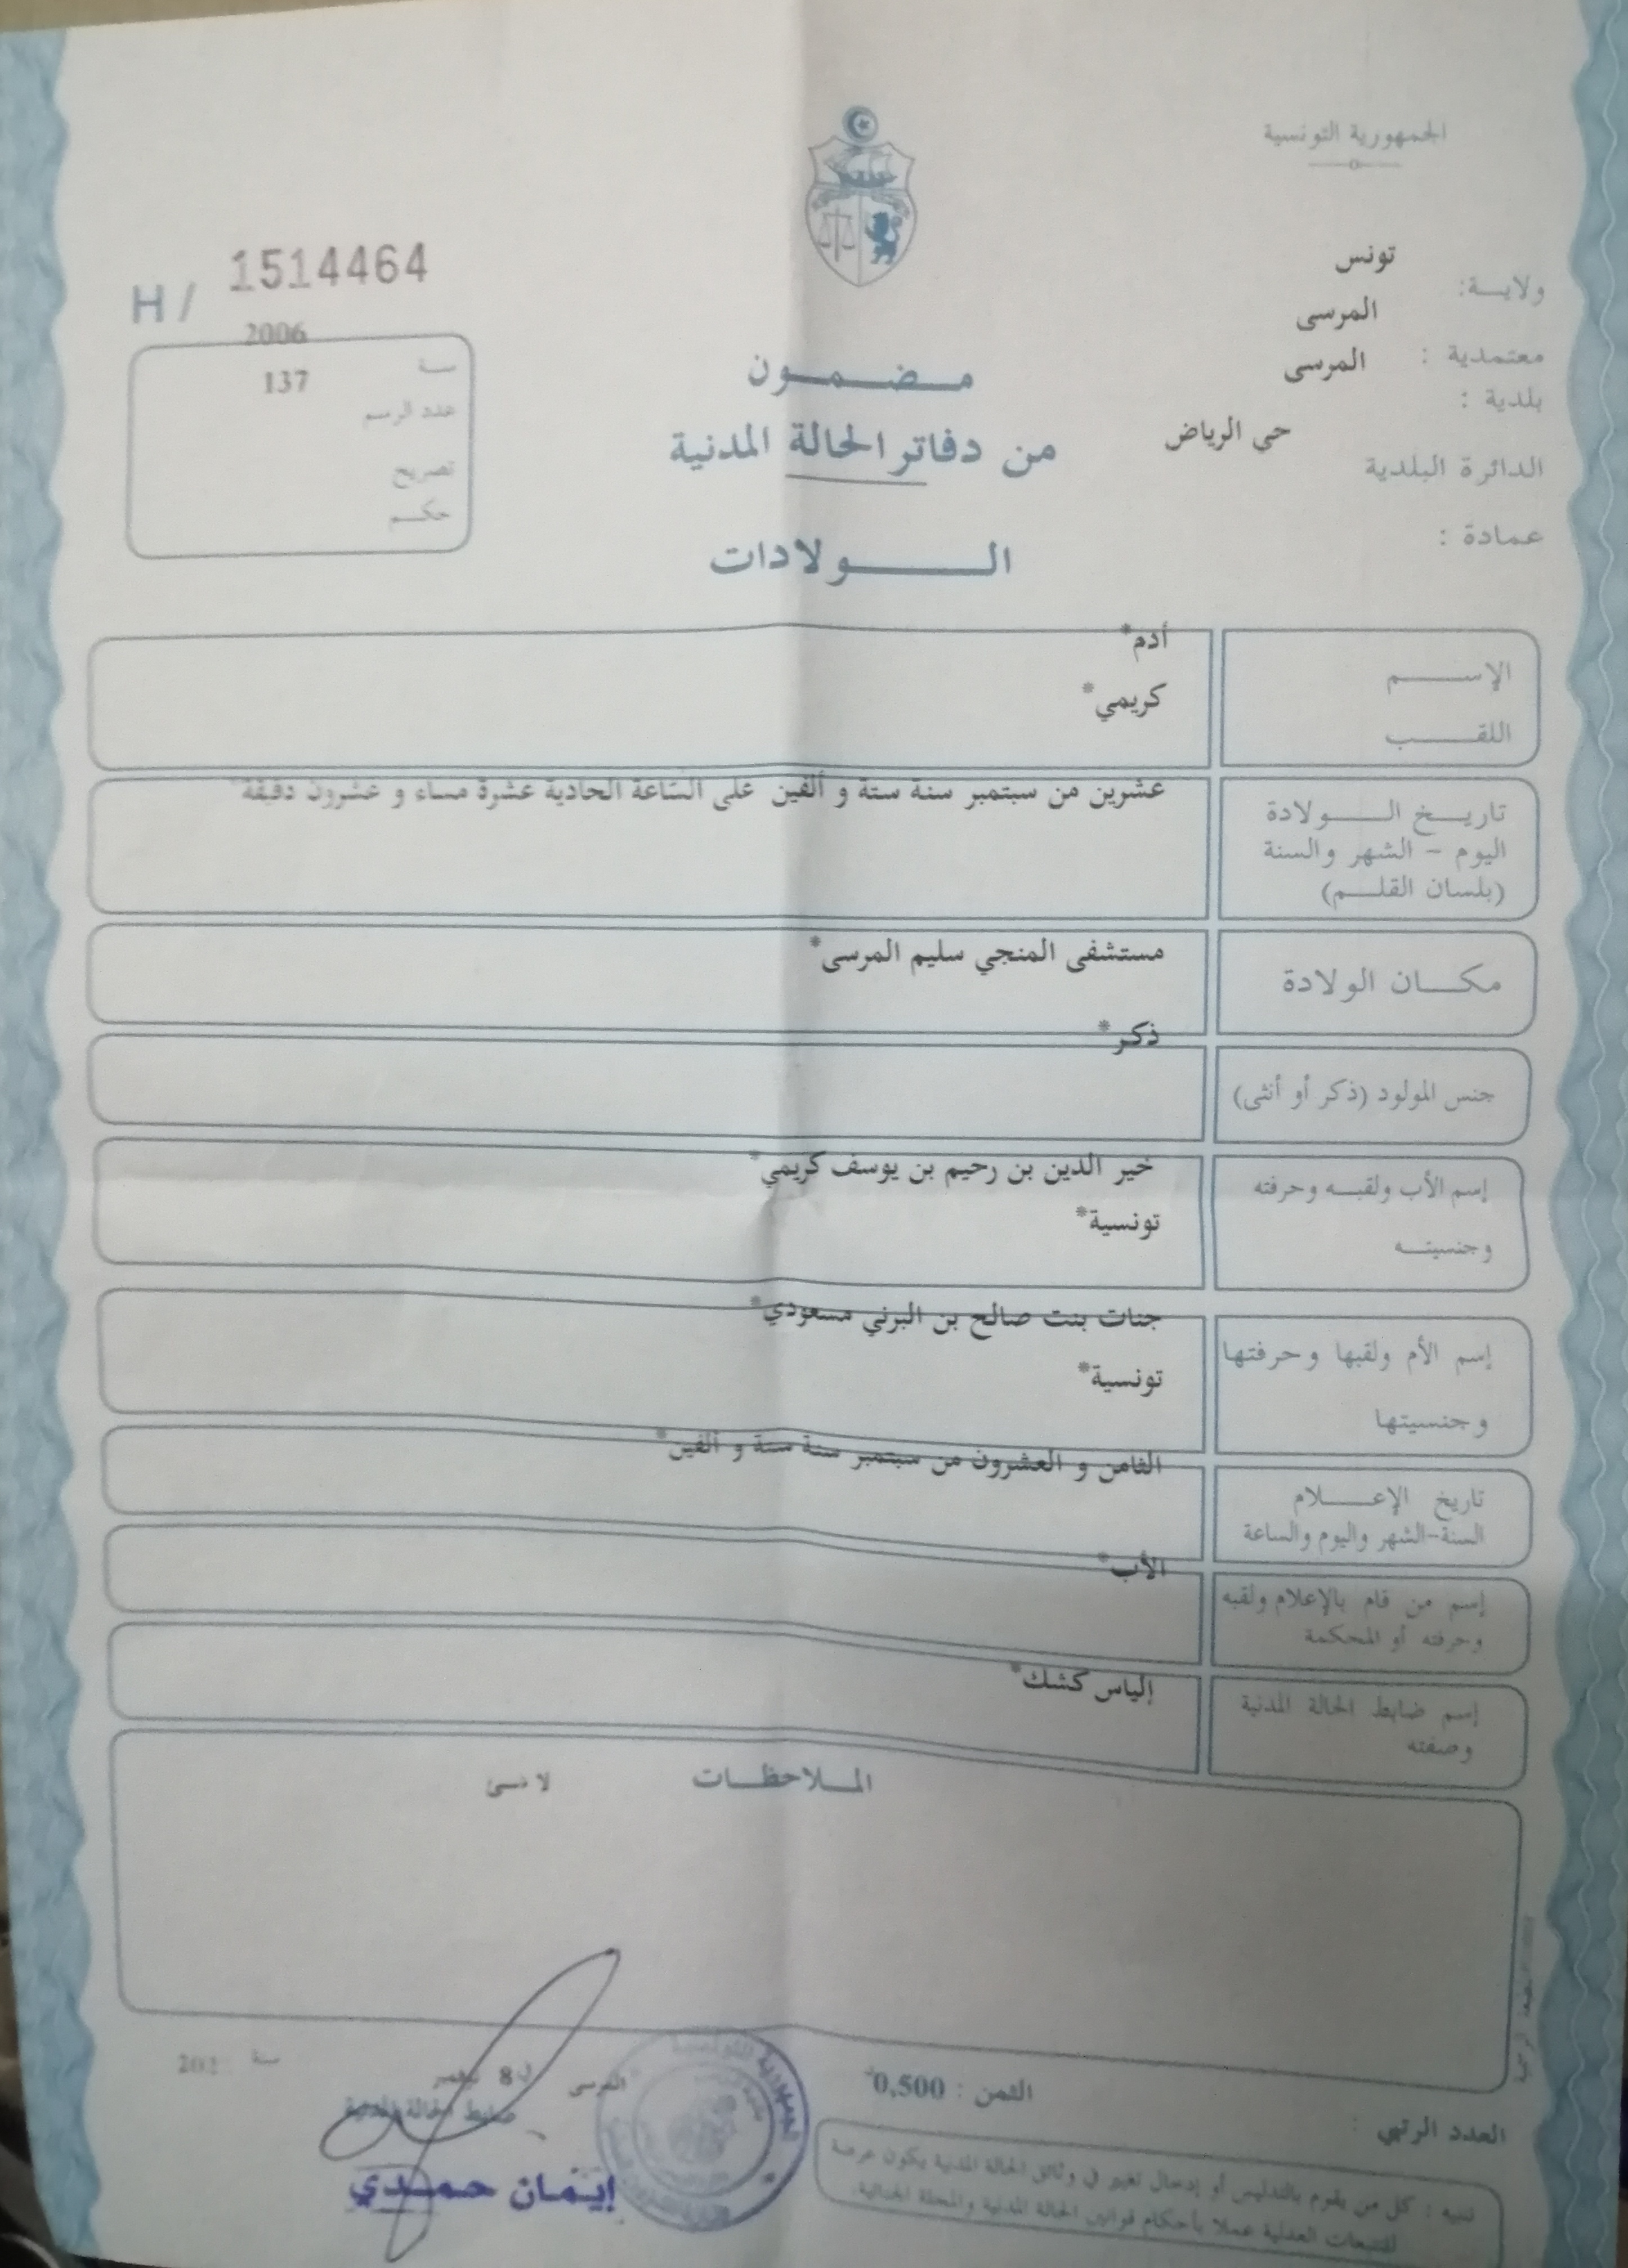 الجمهورية التونسية
ولايـــة: تونس
معتمدية : المرسى
بلدية : المرسى
الدائرة البلدية حي الرياض
عمادة :
H / 1514464
سنة 2006
عدد الرسم 137
تصريح
حكم
مضمون
من دفاتر الحالة المدنية
الـولادات
الإسم أدم*
اللقب كريمي*
تاريخ الـولادة عشرين من سبتمبر سنة ستة و ألفين على الساعة الحادية عشرة مساء و عشرون دقيقة*
اليوم – الشهر والسنة
(بلسان القلم)
مكان الولادة مستشفى المنجي سليم المرسى*
جنس المولود (ذكر أو أنثى) ذكر*
إسم الأب ولقبه وحرفته خير الدين بن رحيم بن يوسف كريمي*
وجنسيته تونسية*
إسم الأم ولقبها وحرفتها جنات بنت صالح بن البرني مسعودي*
وجنسيتها تونسية*
تاريخ الإعلام الثامن و العشرون من سبتمبر سنة ستة و ألفين*
السنة-الشهر واليوم والساعة
إسم من قام بالإعلام ولقبه الأب*
وحرفته أو المحكمة
إسم ضابط الحالة المدنية إلياس كشك*
وصفته
الملاحظات
المرسى في 8 نوفمبر سنة
ضابط الحالة المدنية
إيمان حمدي
الثمن : 0,500
العدد الرتبي :
تنبيه : كل من يقوم بالتدليس أو إدخال تغيير في وثائق الحالة المدنية يكون عرضة
للتتبعات العدلية عملا بأحكام قوانين الحالة المدنية والمجلة الجنائية.